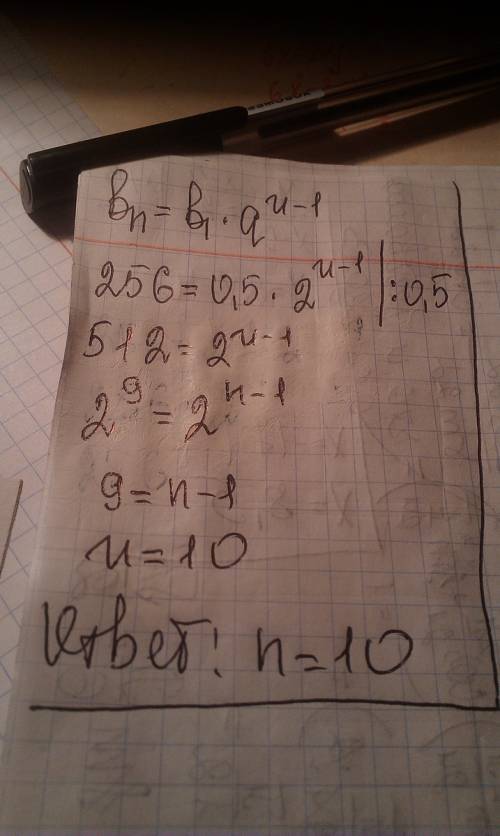 bₙ = b₁ · q^(n-1)
256 = 0,5 · 2^(n-1) | : 0,5
512 = 2^(n-1)
2^9 = 2^(n-1)
9 = n-1
n = 10
Ответ: n = 10